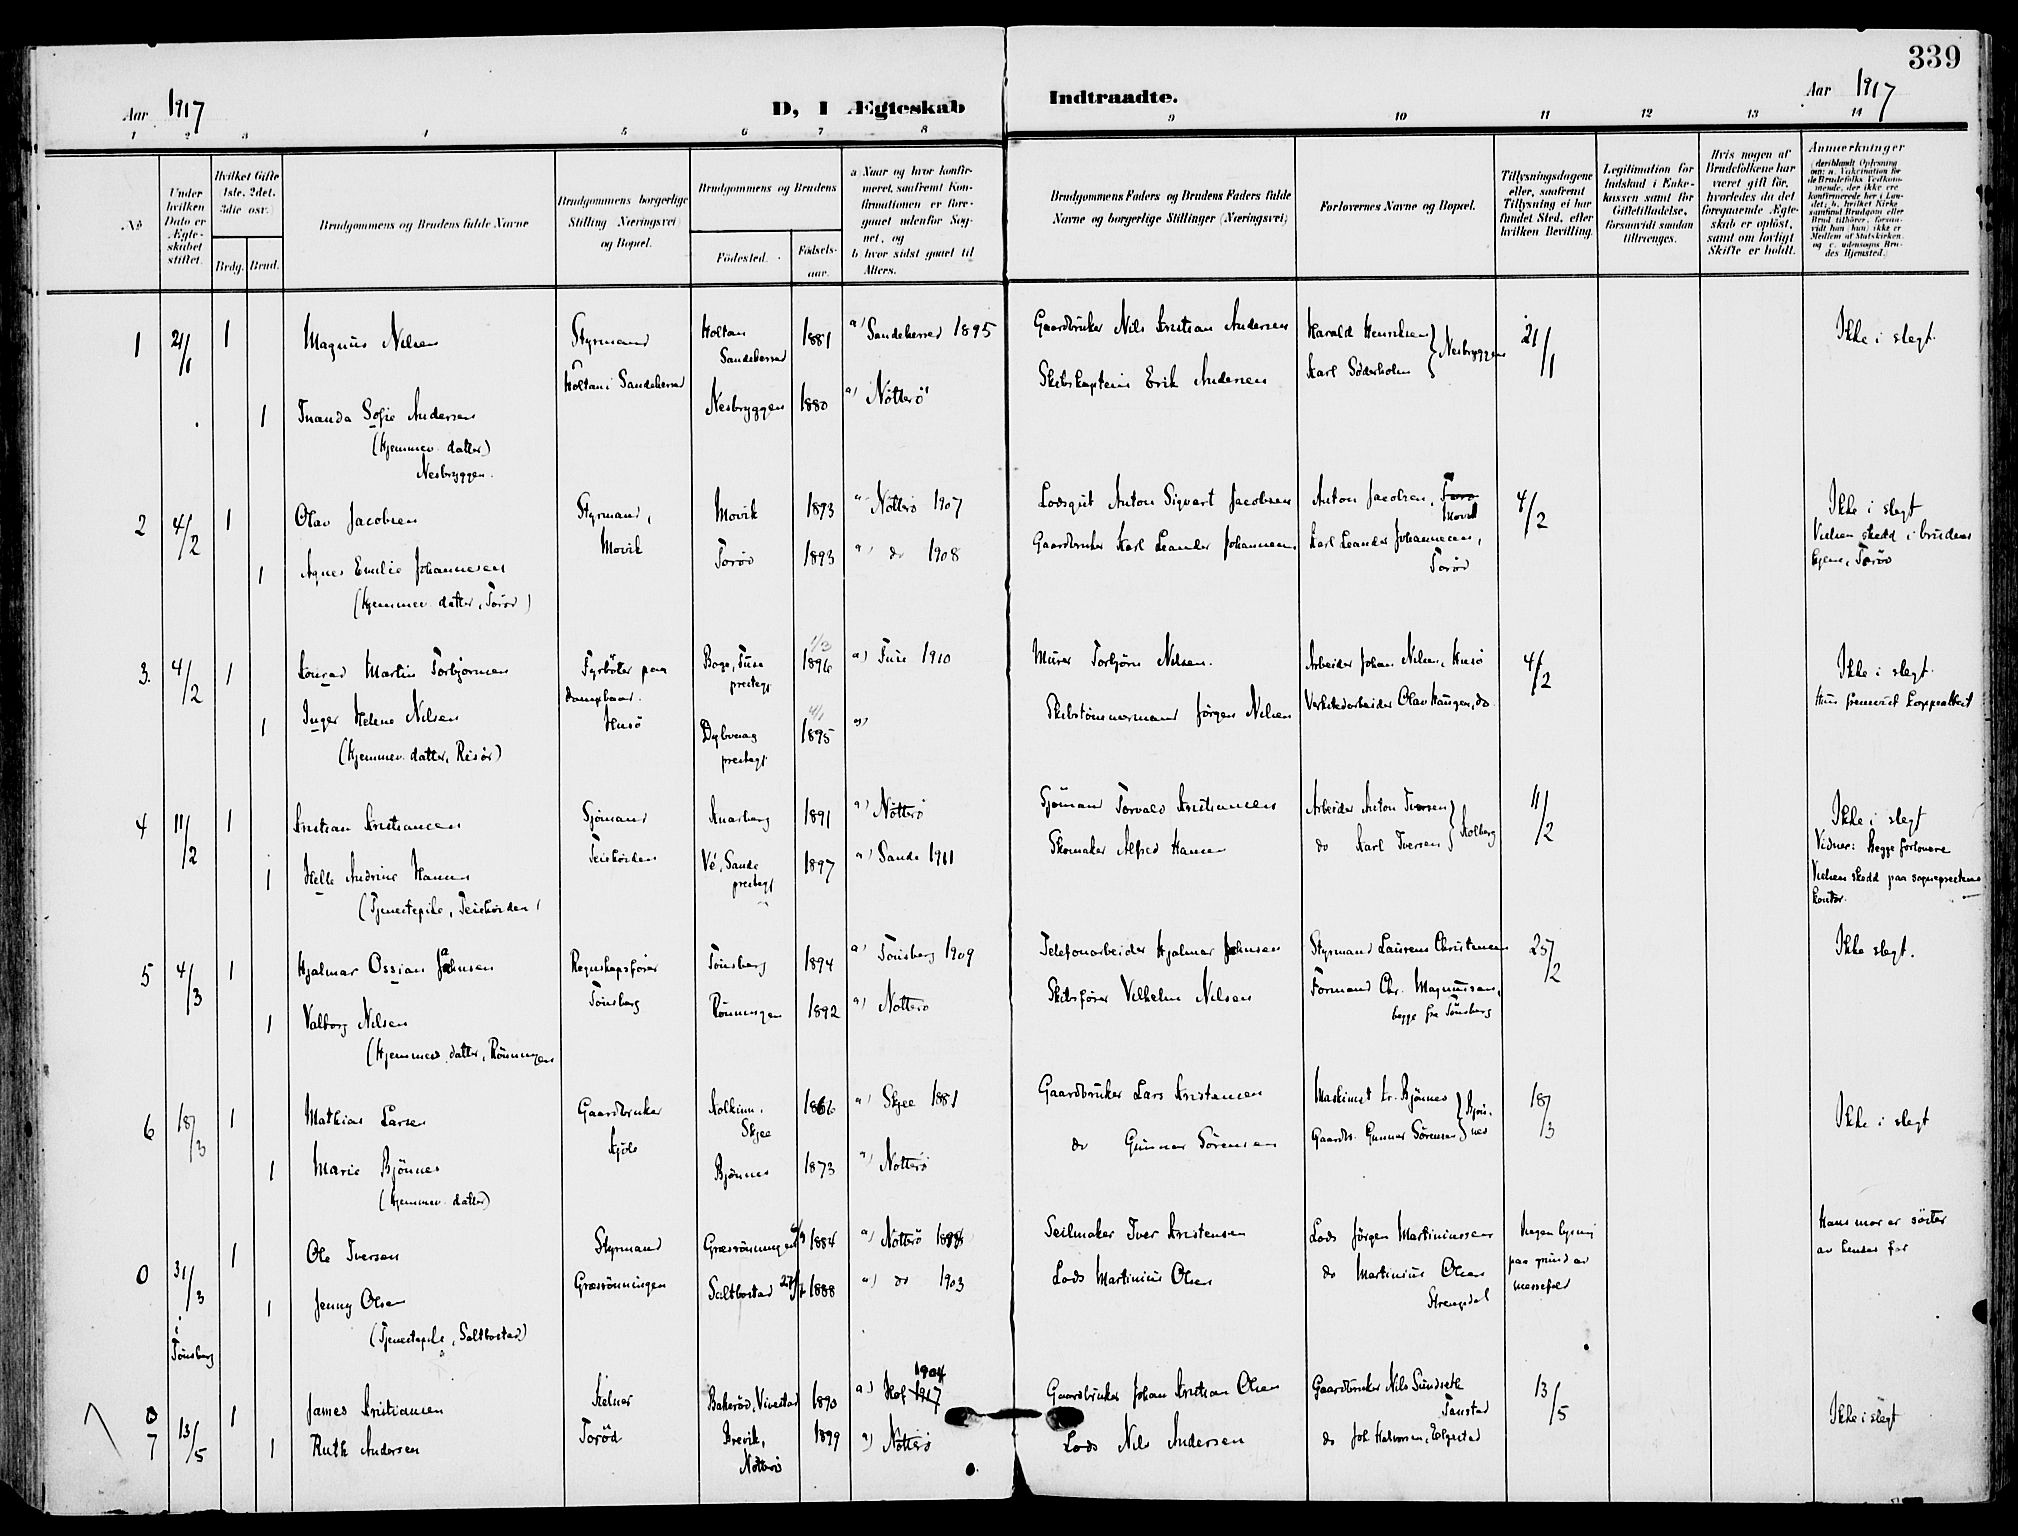 339
Aar 1917
D, I Ægteskab Indtraadte.
Aar 1917
1 2 3 4 5 6 7 8 9 10 11 12 13 14
No
Under hvilken Dato er Ægteskabet stiftet.
Hvilket Gifte (1ste, 2det, 3die osv.)
Brdg. Brud.
Brudgommens og Brudens fulde Navne
Brudgommens borgerlige Stilling (Næringsvei) og Bopæl.
Brudgommens og Brudens
Fødested.
Fødselsaar.
a Naar og hvor konfirmeret, saafremt Konfirmationen er foregaaet udenfor Sognet, og
b hvor sidst gaaet til Alters.
Brudgommens Faders og Brudens Faders fulde Navne og borgerlige Stillinger (Næringsvei)
Forlovernes Navne og Bopæl.
Tillysningsdagene eller, saafremt Tillysning ei har fundet Sted, efter hvilken Bevilling.
Legitimation for Indskud i Enkekassen samt for Giftetilladelse, forsaavidt saadan tiltrænges.
Hvis nogen af Brudefolkene har været gift før, hvorledes da det foregaaende Ægteskab er opløst, samt om lovligt Skifte er holdt.
Anmerkninger
(deriblandt Oplysning om: a. Vakcination for de Brudefolks Vedkommende, der ikke ere konfirmerede her i Landet; b. hvilket Kirkesamfund Brudgom eller Brud tilhører, forsaavidt han (hun) ikke er Medlem af Statskirken, og c. udensogns Brudes Hjemsted.)
1 21/1 1 Magnus Nilsen Styrmand Holtan Sandeherred 1881 a) Sandeherred 1895 Gaardbruker Nils Kristian Andersen Harald Henriksen 21/1 Ikke i slegt.
Holtan i Sandeherred Skibskaptein Erik Andersen Karl Söderholm } Nesbryggen
1 Inanda Sofie Andersen Nesbryggen 1880 a) Nötterö
(Hjemmev. datter)
Nesbryggen.
2 4/2 1 Olav Jacobsen Styrmand, Movik 1893 a) Nötterö 1907 Lodsgut Anton Sigvart Jacobsen Anton Jacobsen, Movik 4/2 Ikke i slegt
Movik Torød 1893 a) do 1908 Gaardbruker Karl Leander Johannesen Karl Leander Johannesen, Torød Vielsen skedd i brudens hjem, Torød
1 Agnes Emilie Johannesen
(Hjemmev. datter, Torød)
3. 4/2 1 Konrad Martin Torbjörnsen Fyrböter paa dampbaad. Husö Fuse prestegj. 1/3 1896 a) Fuse 1910 Murer Torbjörn Nilsen. Arbeider Johan Nilsen, Husö 4/2 Ikke i slegt.
1 Inger Helene Nilsen Dybvaag prestegj. 4/1 1895 a) Skibstömmermand Jörgen Nilsen Verkstedarbeider Olav Haugen, do Hun fremvist koppeattest
(Hjemmev. datter, Risör)
4 11/2 1 Kristian Kristiansen Sjömand Knarberg 1891 a) Nötterö Sjömand Torvald Kristiansen Arbeider Anton Iversen 11/2 Ikke i slegt
Teiehöiden Ve, Sande prestegj 1897 a) Sande 1911 Skomaker Alfred Hansen do Karl Iversen } Kolberg Vidner: Begge forlovere
1 Helle Andrine Hansen Vielsen skedd paa sogneprestens kontor.
(Tjenestepike, Teiehöiden)
5 4/3 1 Hjalmar Ossian Jahnsen Regnskapsförer Tönsberg 1894 a) Tönsberg 1909 Telefonarbeider Hjalmar Johnsen Styrmand Laurens Christensen 25/2 Ikke slegt.
Tönsberg Rönningen 1892 a) Nötterö Skibsförer Vilhelm Nilsen Formand Chr. Magnussen, begge fra Tönsberg
1 Valborg Nilsen
(Hjemmev. datter, Rönningen
6 18/3 1 Mathias Larsen Gaardbruker Skjee 1866 a) Skjee 1881 Gaardbruker Lars Kristensen Maskinist Kr. Bjönnes 18/3 Ikke i slegt
do Gunnar Sörensen Gaardbr. Gunnar Sörensen } Bjönnes
1 Marie Bjönnes Bjönnes 1873 a) Nötterö
(Hjemmev. datter)
0 31/3 i Tönsberg 1 Ole Iversen Styrmand Græsrönningen 1884 a) Nötterö Seilmaker Iver Kristensen Lods Jörgen Martiniussen Ingen lysning paa grund av messefald Hans mor er söster av hendes far
1 Jenny Olsen Græsrönningen Saltbostad 1888 a) do 1903 Lods Martinius Olsen do Martinius Olsen Strengsdal
(Tjenestepike, Saltbostad)
7 13/5 1 James Kristiansen Kelner Bakeröd, Vivestad 1890 a) Hof 1904 1917 Gaardbruker Johan Kristian Olsen Gaardbruker Nils Sundseth 13/5 Ikke i slegt
1 Ruth Andersen Torød Brevik, Nötterö 1899 a) Nötterö Lods Nils Andersen do Joh Halvorsen, Elgestad